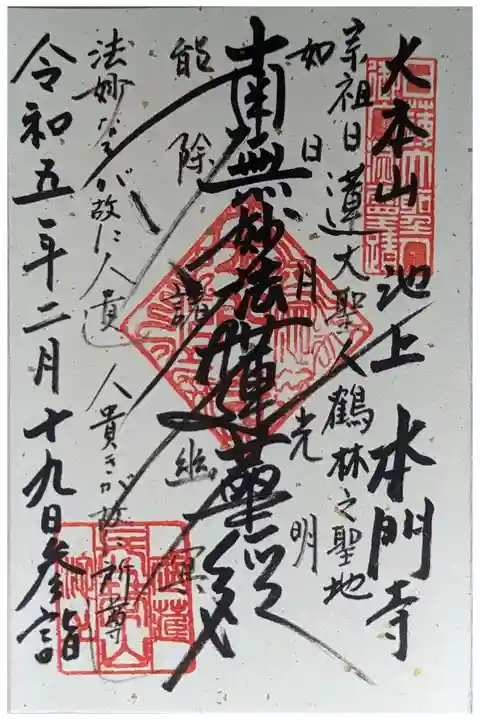 大本山 池上 本門寺
宗祖日蓮大聖人鶴林之聖地
如日月光明
南無妙法蓮華経
能除諸幽冥
法妙なるが故に人貴し 人貴きが故に所尊し
令和五年二月十九日参詣